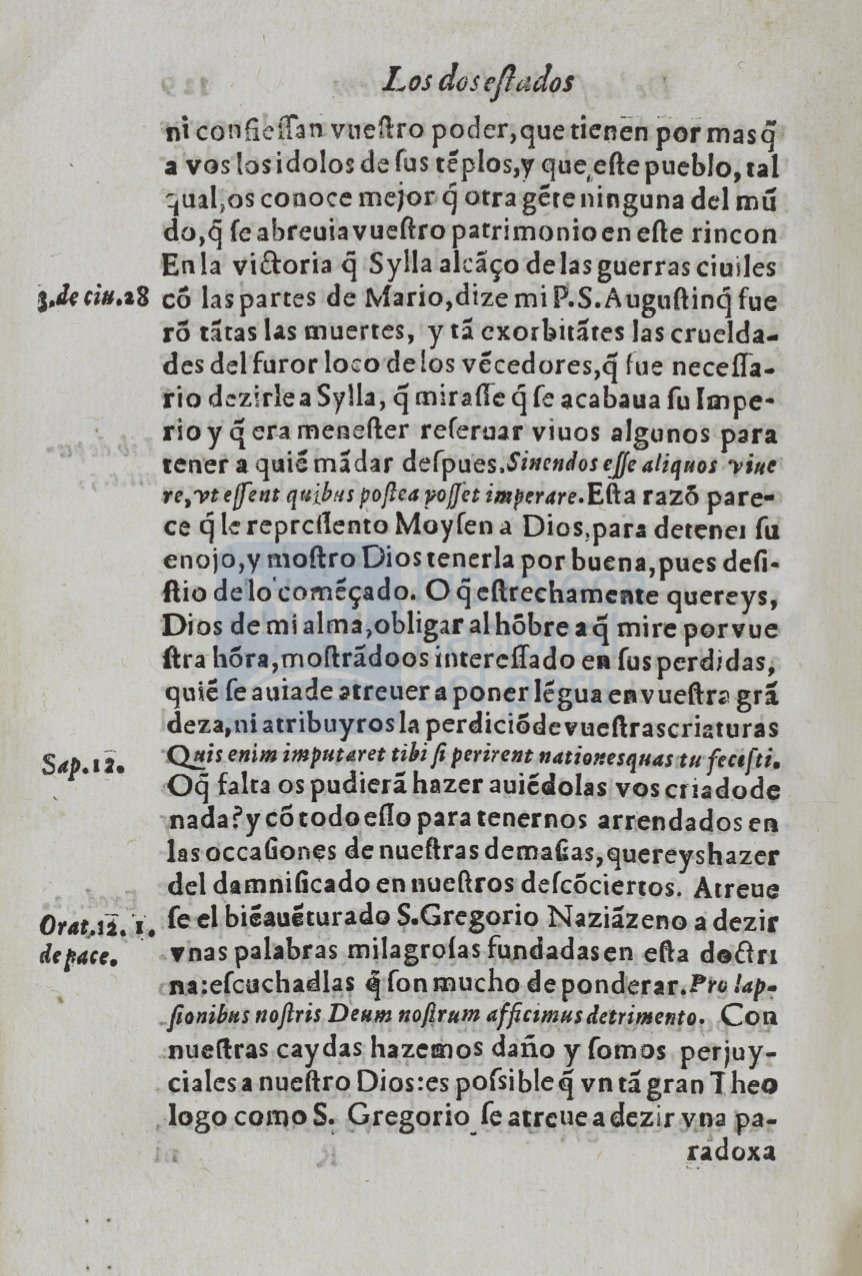 Los dos eſtados
ni confieſſan vueſtro poder, que tienen por mas q̃
a vos los idolos de ſus tẽplos, y que eſte pueblo, tal
qual, os conoce mejor q̃ otra gẽte ninguna del mũ
do, q̃ ſe abreuia vueſtro patrimonio en eſte rincon
En la victoria q̃ Sylla alcãço de las guerras ciuiles
3. de ciu. 28
cõ las partes de Mario, dize mi P. S. Auguſtin q̃ fue
rõ tãtas las muertes, y tã exorbitãtes las cruelda-
des del furor loco de los vẽcedores, q̃ fue neceſſa-
rio dezirle a Sylla, q̃ miraſſe q̃ ſe acabaua ſu Impe-
rio y q̃ era meneſter reſeruar viuos algunos para
tener a quiẽ mãdar deſpues. Sinendos eſſe aliquos viue
re, vt eſſent quibus poſtea poſſet imperare. Eſta razõ pare-
ce q̃ le repreſſento Moyſen a Dios, para detener ſu
enojo, y moſtro Dios tenerla por buena, pues deſi-
ſtio de lo comẽçado. O q̃ eſtrechamente quereys,
Dios de mi alma, obligar al hõbre a q̃ mire por vue
ſtra hõra, moſtrãdoos intereſſado en ſus perdidas,
quiẽ ſe auia de atreuer a poner lẽgua en vueſtra grã
deza, ni atribuyros la perdiciõ de vueſtras criaturas
Sap. 12.
Quis enim imputaret tibi ſi perirent nationes quas tu feciſti.
O q̃ falta os pudierã hazer auiẽdolas vos criado de
nada? y cõ todo eſſo para tenernos arrendados en
las occaſiones de nueſtras demaſias, quereys hazer
del damnificado en nueſtros deſcõciertos. Atreue
Orat. 12. 1.
de pace.
ſe el biẽauẽturado S. Gregorio Naziãzeno a dezir
vnas palabras milagroſas fundadas en eſta doctri
na: eſcuchadlas q̃ ſon mucho de ponderar. Pro lap-
ſionibus noſtris Deum noſtrum afficimus detrimento. Con
nueſtras caydas hazemos daño y ſomos perjuy-
ciales a nueſtro Dios: es poſsible q̃ vn tã gran Theo
logo como S. Gregorio ſe atreue a dezir vna pa-
radoxa